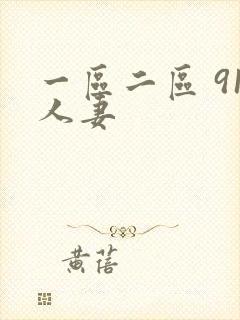 一區二區 91
人妻
黄蓓